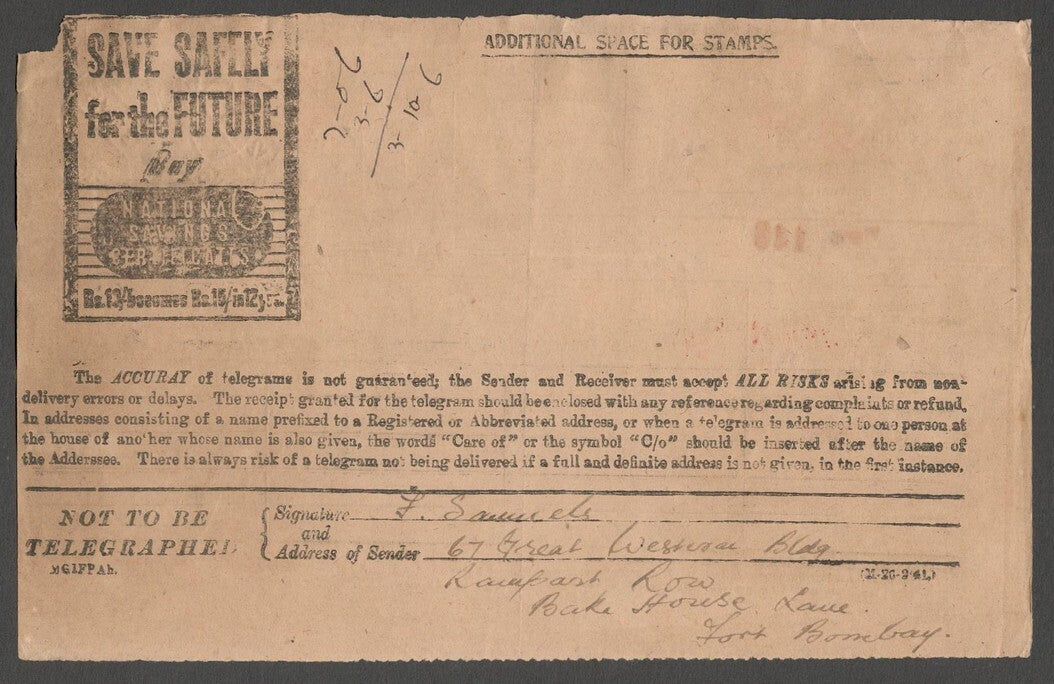 SAVE SAFELY
for the FUTURE
Buy
NATIONAL
SAVINGS
CERTIFICATES
Rs.10/-becomes Rs.15/in 12 yrs.
ADDITIONAL SPACE FOR STAMPS.
3-6
3-10-6
The ACCURAY of telegrams is not guaran'eed; the Sender and Receiver must accept ALL RISKS arising from non-
delivery errors or delays. The receipt granted for the telegram should be enclosed with any reference regarding complaints or refund.
In addresses consisting of a name prefixed to a Registered or Abbreviated address, or when a telegram is addressed to one person at
the house of ano'her whose name is also given, the words "Care of" or the symbol "C/o" should be inserted after the name of
the Adderssee. There is always risk of a telegram not being delivered if a full and definite address is not given, in the first instance.
NOT TO BE
TELEGRAPHED
MGIFPAh.
Signature F. Samuels
and
Address of Sender 67 Great Western Bldg
Rampart Row
Bake House Lane.
Fort Bombay.